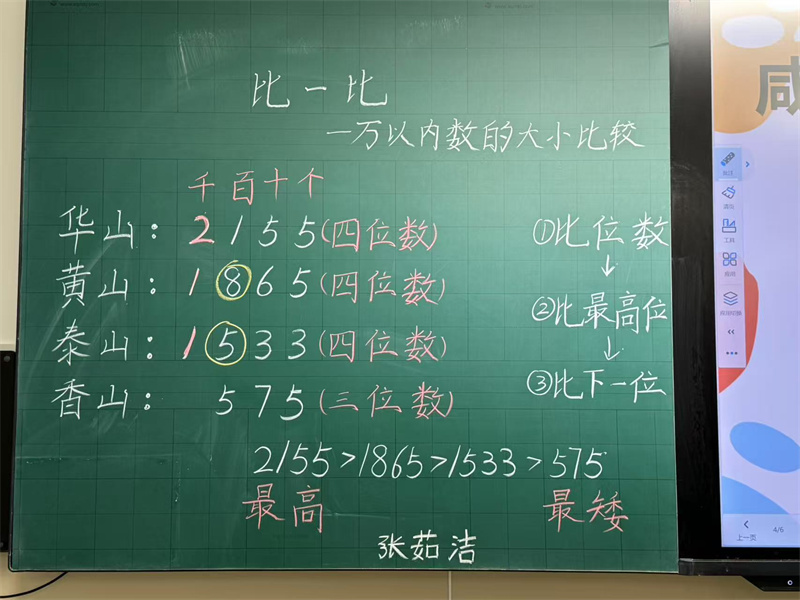 比一比
一万以内数的大小比较
千百十个
华山：2155(四位数)
黄山：1865(四位数)
泰山：1533(四位数)
香山：575(三位数)
①比位数
↓
②比最高位
↓
③比下一位
2155>1865>1533>575
最高 最矮
张茹洁
咸
工具
4/6
上一页